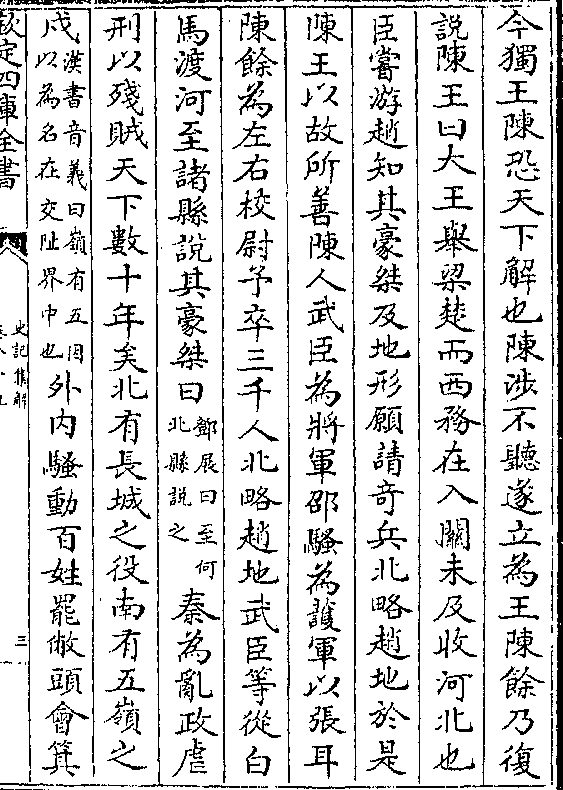 今獨王陳恐天下解也陳涉不聽遂立為王陳餘乃復
說陳王曰大王舉梁楚而西務在入關未及收河北也
臣嘗游趙知其豪桀及地形願請竒兵北略趙地於是
陳王以故所善陳人武臣為將軍邵騷為護軍以張耳
陳餘為左右校尉予卒三千人北略趙地武臣等從白
馬渡河至諸縣說其豪桀曰鄧展曰至河北縣説之秦為亂政虐
刑以殘賊天下數十年矣北有長城之役南有五嶺之
戍漢書音義曰嶺有五因以為名在交阯界中也外内騷動百姓罷敝頭會箕
欽定四庫全書
史記集解
三